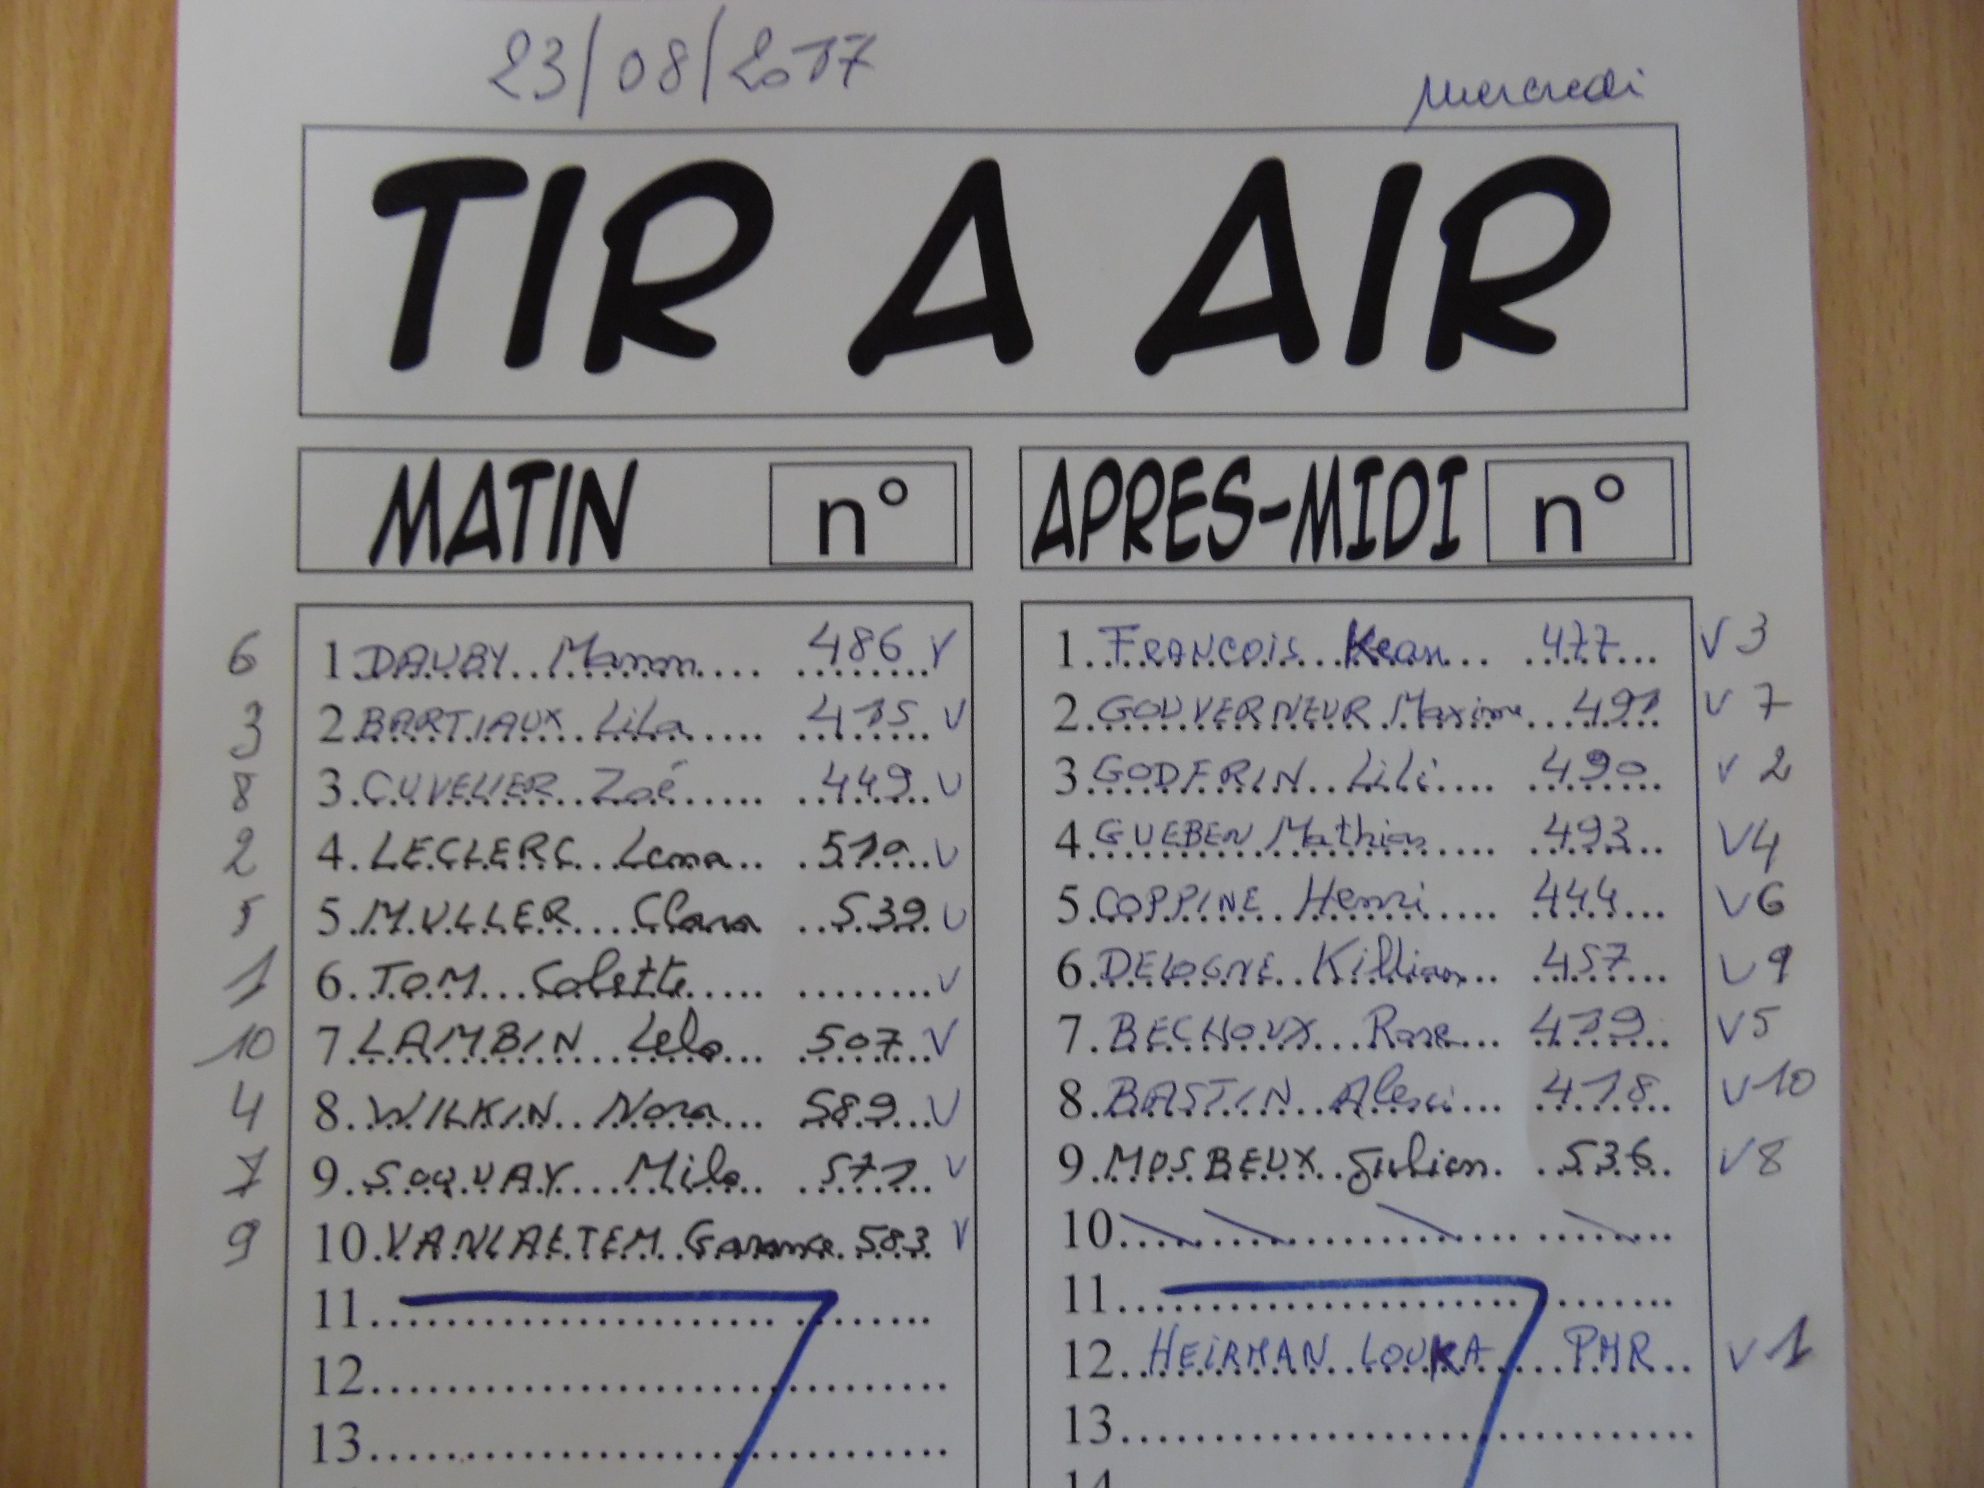 23/08/2017
mercredi
TIR A AIR
MATIN n°
6 1 DAUBY Manon 486 V
3 2 BARTIAUX Lila 415 V
8 3. CUVELIER Zoé 449 V
2 4. LECLERC Lena 510 V
5 5. MULLER Clara 539 V
1 6. TOM Colette V
10 7. LAMBIN Lelo 507 V
4 8. WILKIN Nora 589 V
7 9. SOQUAY Milo 571 V
9 10. VANLAETEM Garance 583 V
11.
12.
13.
APRES-MIDI n°
1. FRANCOIS Kean 477 V 3
2. GOUVERNEUR Maxime 491 V 7
3. GODFRIN Lili 490 V 2
4. GUEBEN Mathias 493 V 4
5. COPPINE Henri 444 V 6
6. DELOGNE Killian 457 V 9
7. BECHOUX Rose 419 V 5
8. BASTIN Alessi 418 V 10
9. MOSBEUX Julien 536 V 8
10.
11.
12. HEIRMAN LOUKA PMR V 1
13.
14